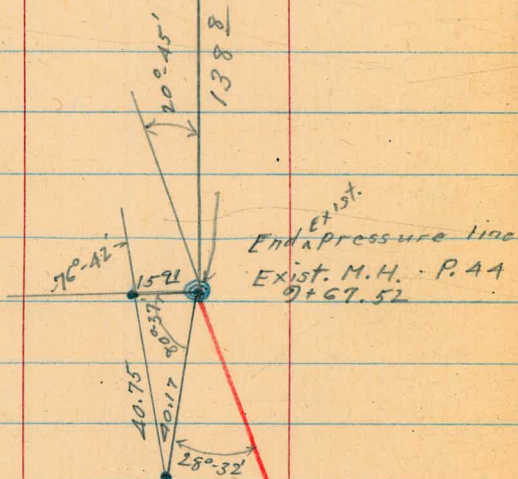 20°-45'
138 8
End Exist. Pressure line
Exist. M.H. P. 44
9+67.52
76°-42'
1591
80°-37'
40.75
40.17
28°-32'